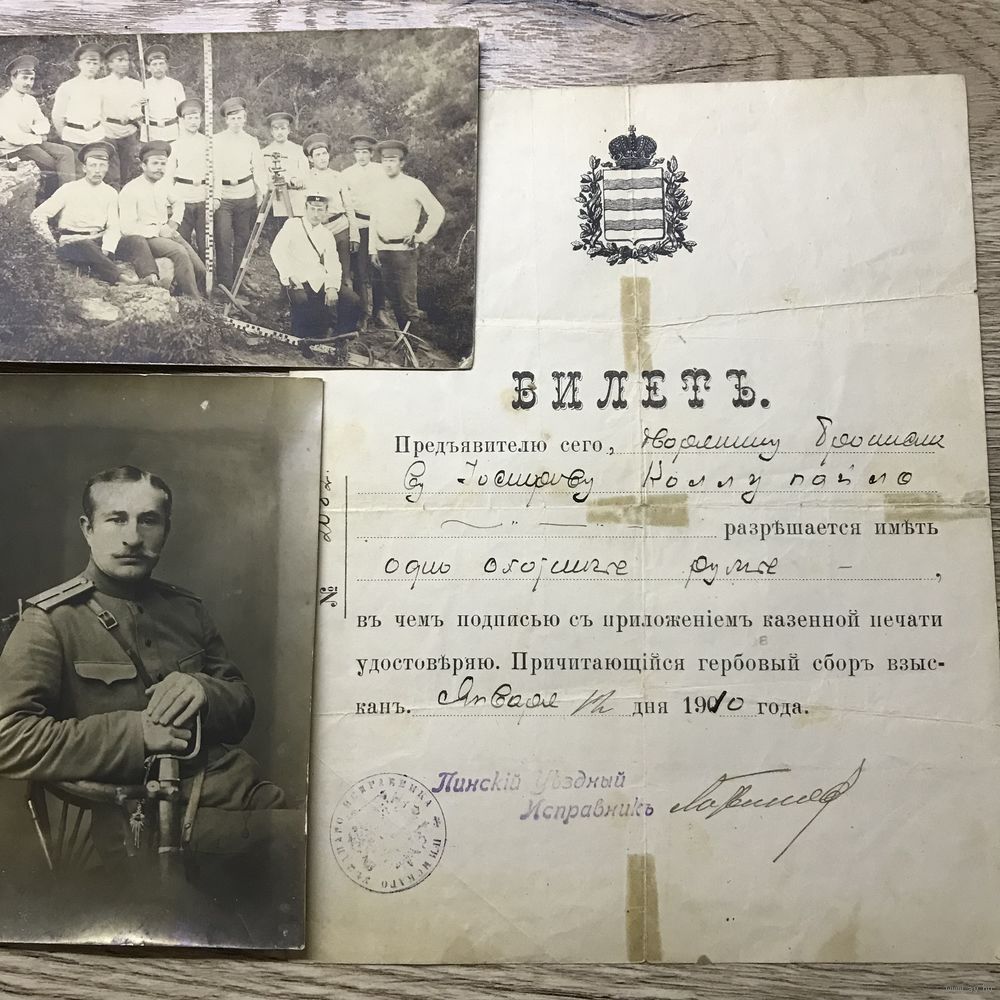 БИЛЕТЪ.
Предъявителю сего, дворянину Брониславу
Іосифову Коллупайло
разрѣшается имѣть
одно охотничье ружье — ,
въ чемъ подписью съ приложеніемъ казенной печати
удостовѣряю. Причитающійся гербовый сборъ взыс-
канъ. Января 12 дня 1910 года.
№
Пинскій Уѣздный
Исправникъ
ПИНСКАГО УѢЗДНАГО ИСПРАВНИКА